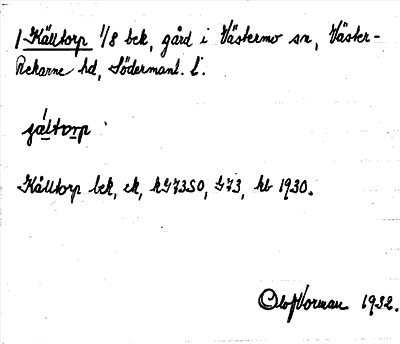 1 Källtorp 1/8 bek, gård i Västermo sn, Väster-
Rekarne hd, Södermanl. l.
jàltòrp
Källtorp bek, ek, kG73SO, G73, kb 1930.
Olof Norman 1932.